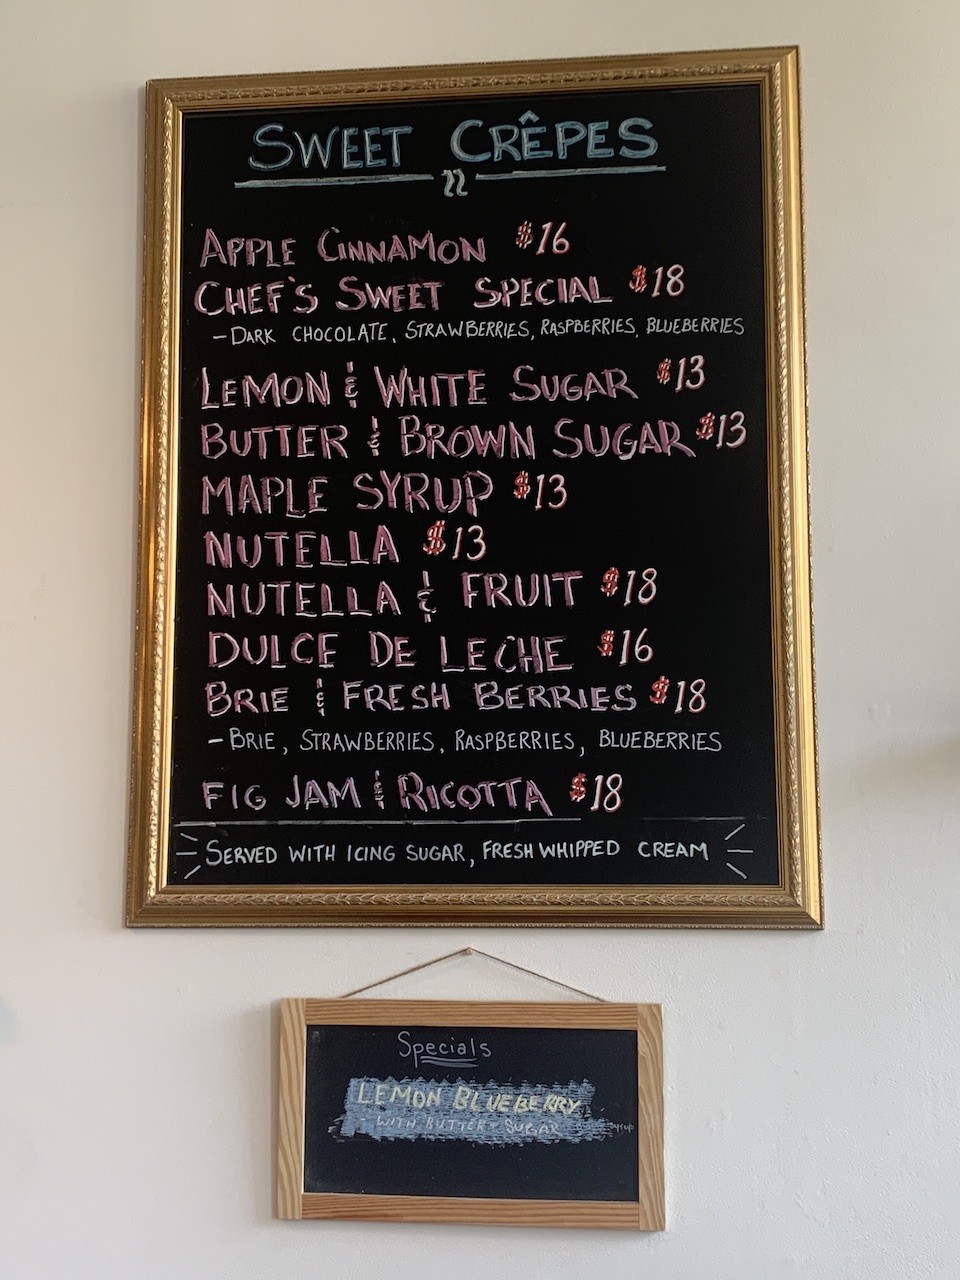 SWEET CRÊPES
APPLE CINNAMON $16
CHEF'S SWEET SPECIAL $18
- DARK CHOCOLATE, STRAWBERRIES, RASPBERRIES, BLUEBERRIES
LEMON & WHITE SUGAR $13
BUTTER & BROWN SUGAR $13
MAPLE SYRUP $13
NUTELLA $13
NUTELLA & FRUIT $18
DULCE DE LECHE $16
BRIE & FRESH BERRIES $18
- BRIE, STRAWBERRIES, RASPBERRIES, BLUEBERRIES
FIG JAM & RICOTTA $18
SERVED WITH ICING SUGAR, FRESH WHIPPED CREAM
Specials
LEMON BLUEBERRY
WITH BUTTER + SUGAR syrup